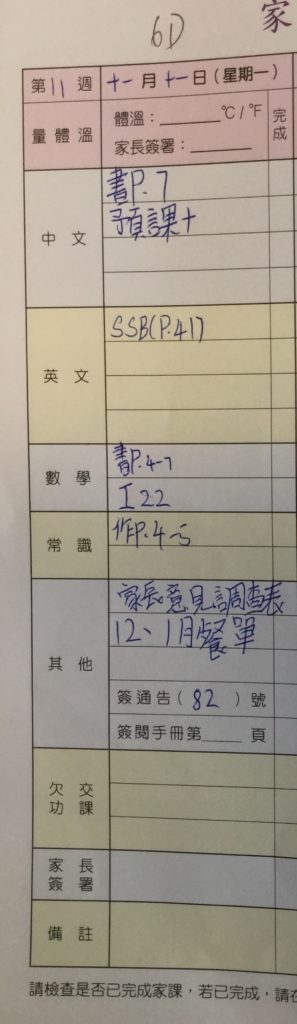 6D
家
第 11 週 十一 月 十一 日 (星期一)
量體溫 體溫：______°C / °F 完成
家長簽署：______
中文 書P.7
預課十
英文 SSB(P.41)
數學 書P.4-7
工22
常識 作P.4-5
其他 家長意見調查表
12、1月餐單
簽通告( 82 )號
簽閱手冊第____頁
欠交功課
家長簽署
備註
請檢查是否已完成家課，若已完成，請在